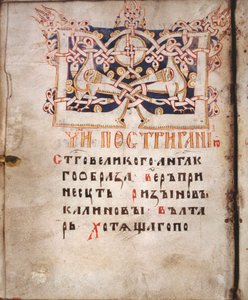 ЧИ҃ ПОСТРИГАНІЮ
СТГОВЕЛИКОГО АНГЛК
ГООБРАЗА ВЕРЪПРИ
НЕСЦТЬ РИЗЫНОВЪ
КАЛИНОВЫ ВЪЛТА
РЬ ХОТѦЩАГОПО